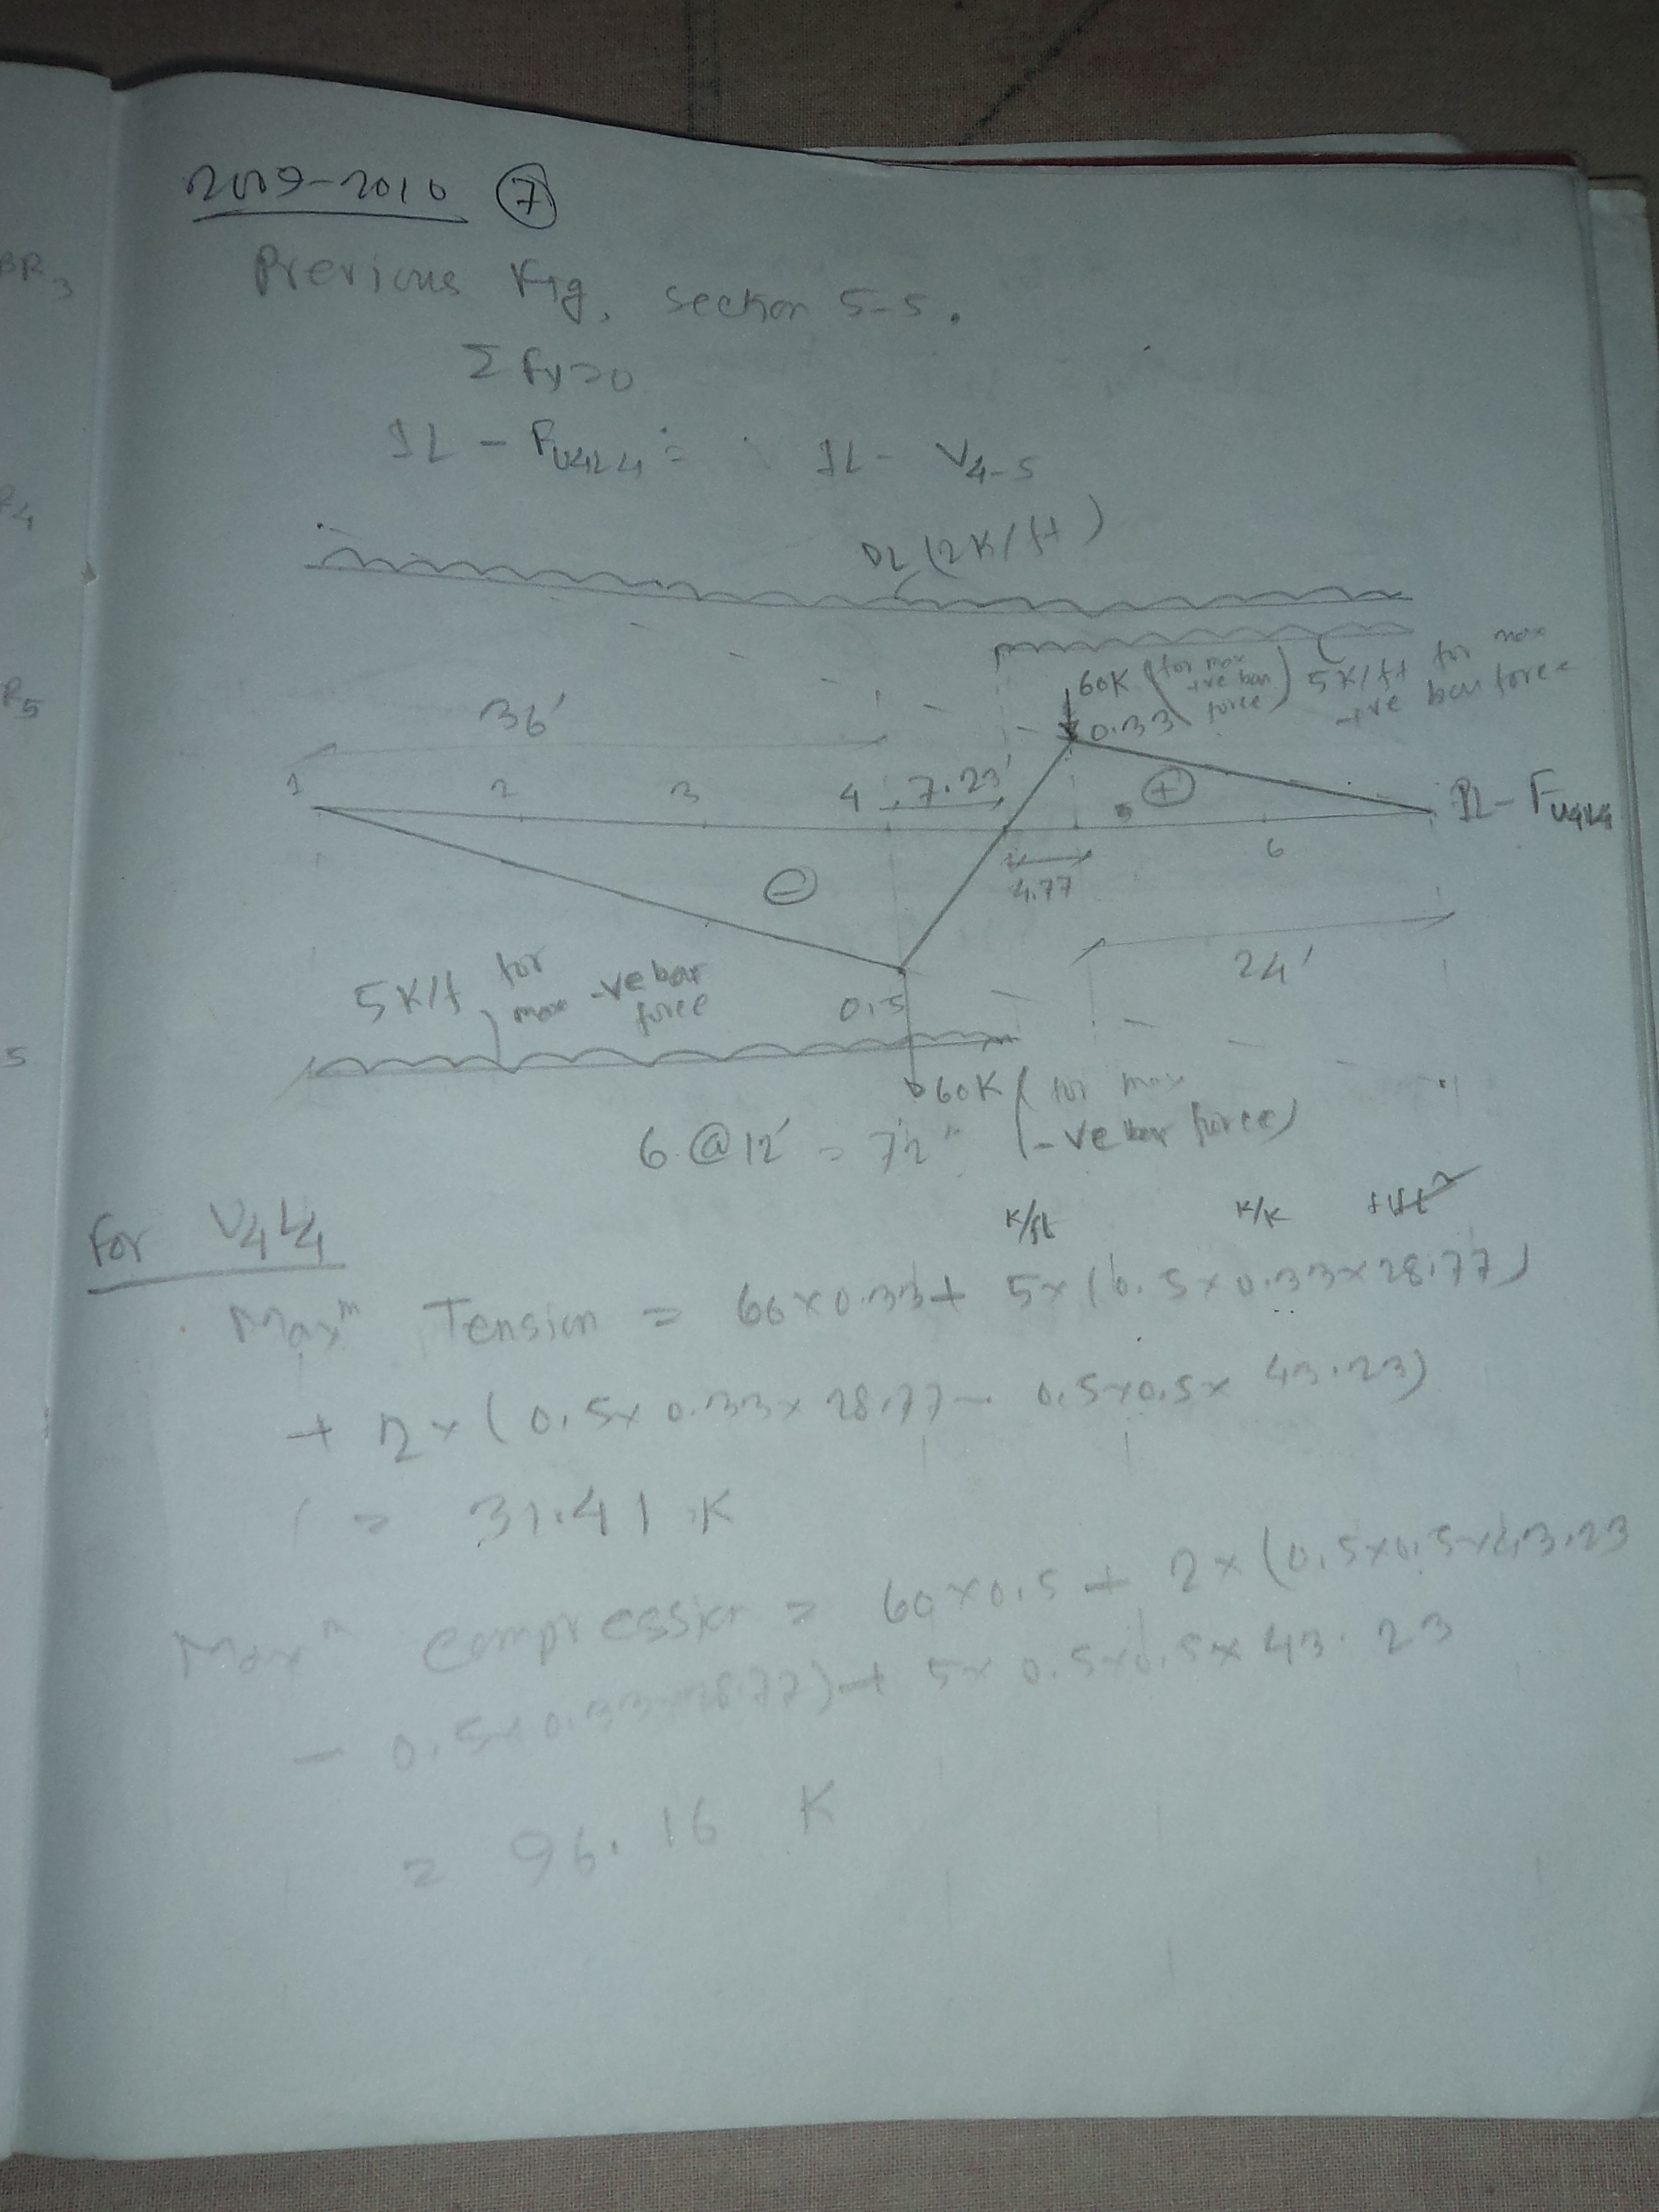 2009-2010 ⑦
BR3
Previous Fig, section 5-5.
Σ Fy=0
R4
IL - FU4L4 = IL - V4-5
DL (2K/ft)
60K (for max +ve bar force) 5K/ft for max +ve bar force
R5
36'
0.33
1 2 3 4 7.23' 5 + 6 IL - FU4L4
-
4.77
24'
5K/f for max -ve bar force
0.5
5
60K (for max -ve bar force)
6 @ 12' = 72"
K/ft K/K
For U4L4
Maxm Tension = 60x0.33 + 5x(0.5x0.33x28.77)
+ 2x(0.5x0.33x28.77 - 0.5x0.5x 43.23)
= 31.41 K
Maxm compression = 60x0.5 + 2x(0.5x0.5x43.23
- 0.5x0.33x28.77) + 5x 0.5x0.5x 43.23
= 96.16 K